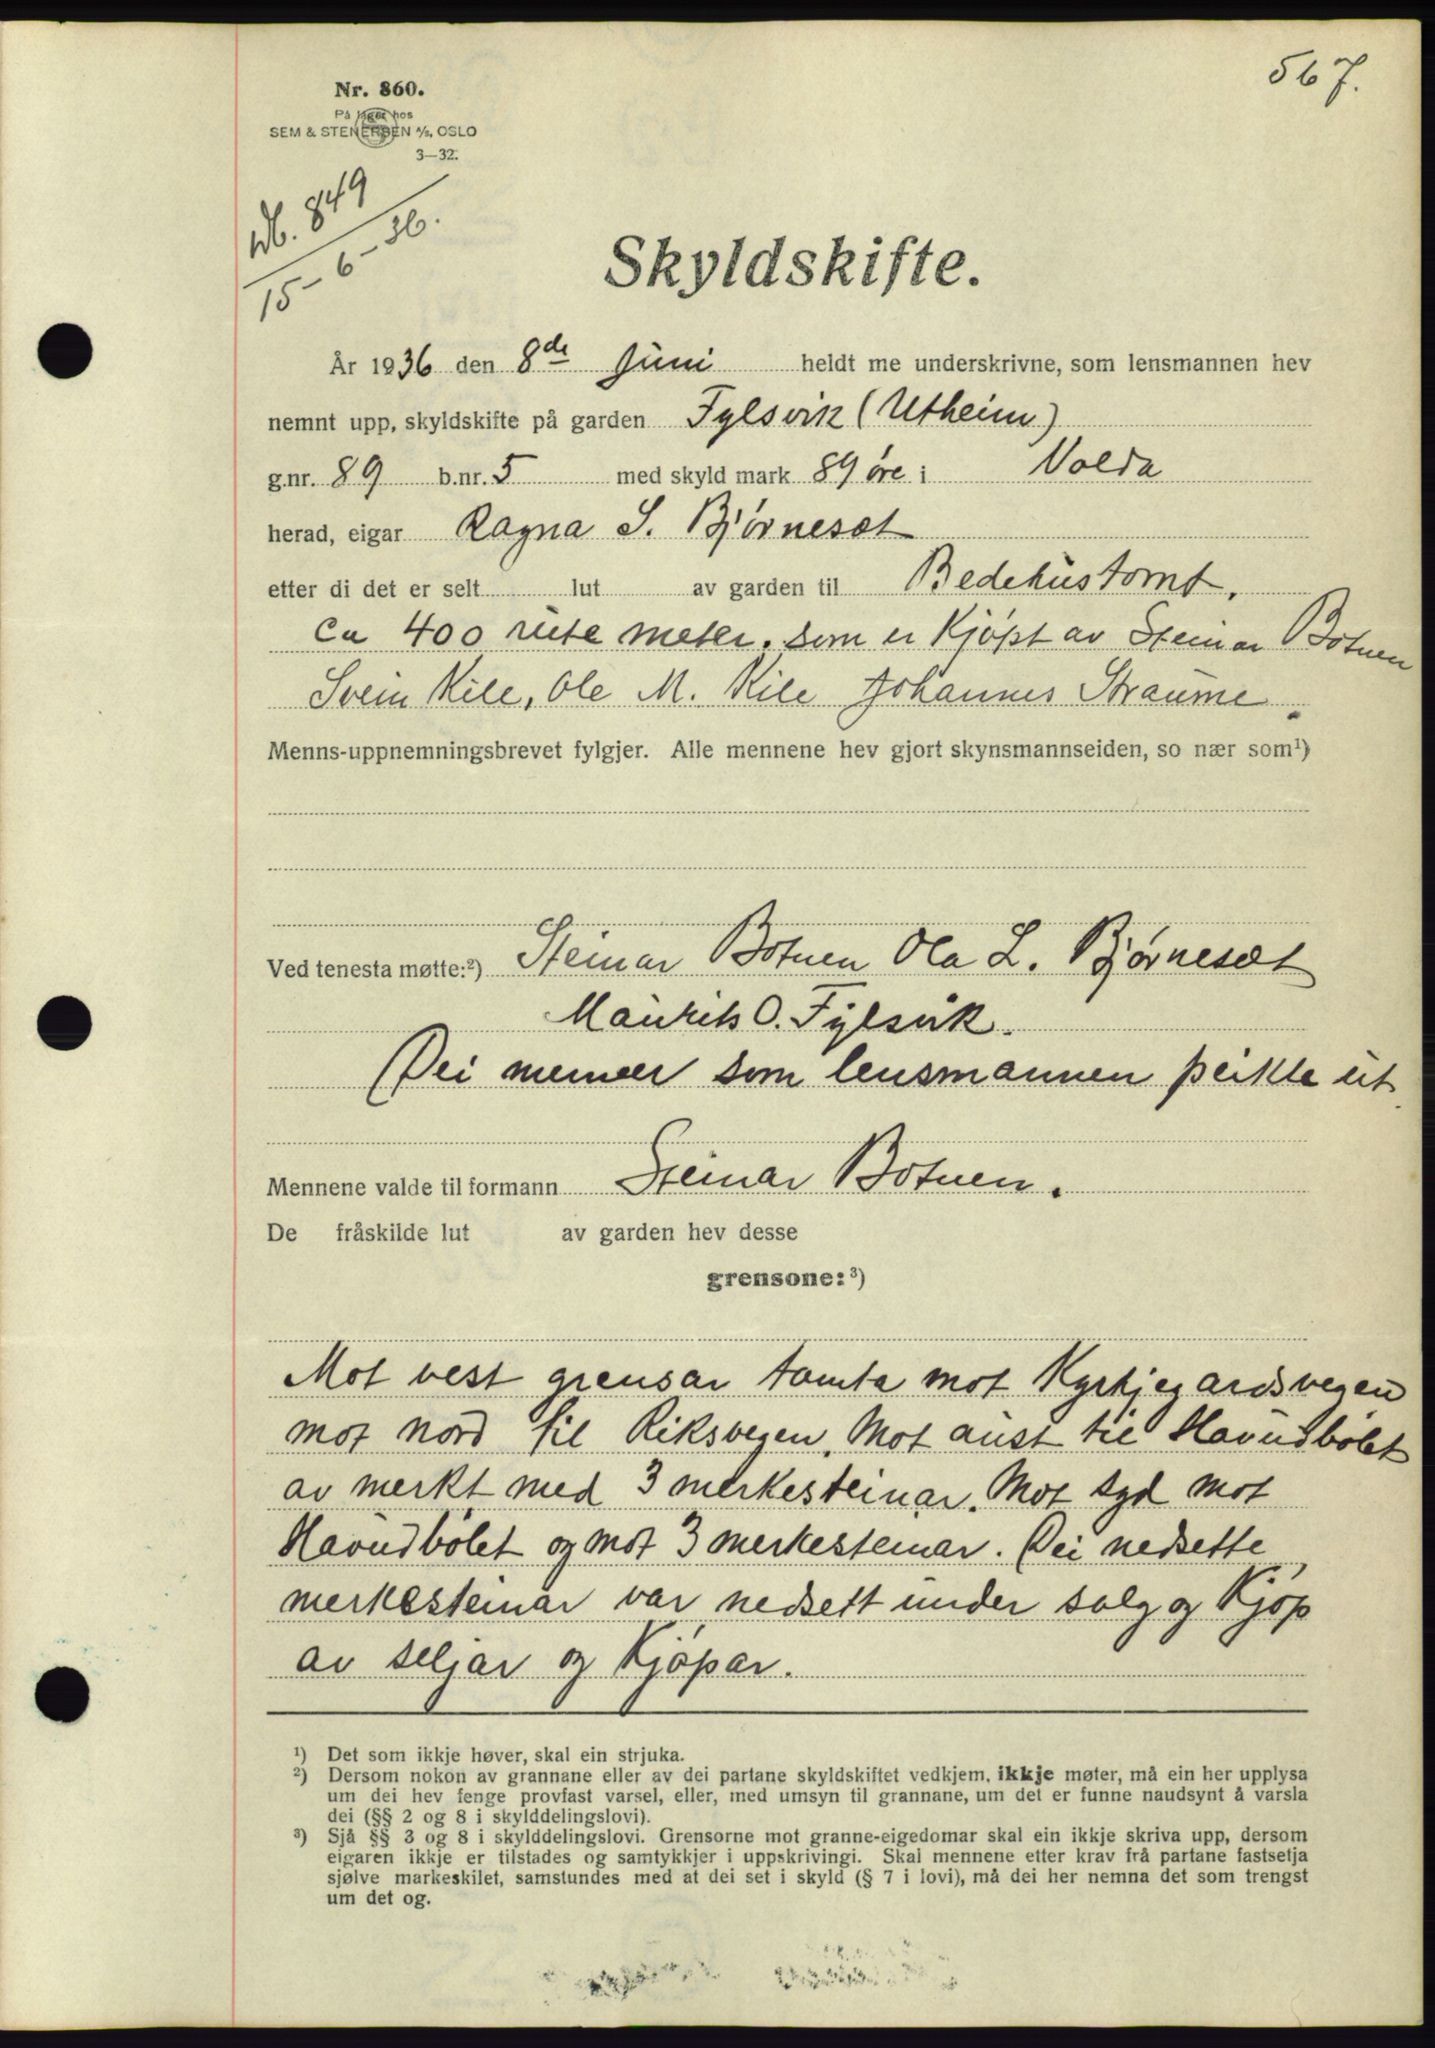 567.
Nr. 860.
På lager hos
SEM & STENERSEN A/S, OSLO
3—32.
Nb. 849
15-6-36.
Skyldskifte.
År 1936 den 8de Juni heldt me underskrivne, som lensmannen hev
nemnt upp, skyldskifte på garden Fylsvik (Utheim)
g.nr. 89 b.nr. 5 med skyld mark 89 øre i Volda
herad, eigar Ragna S. Bjørneset
etter di det er selt lut av garden til Bedehustomt.
Ca 400 rute meter. som er Kjøpt av Steinar Botnen
Svein Kile, Ole M. Kile Johannes Straume.
Menns-uppnemningsbrevet fylgjer. Alle mennene hev gjort skynsmannseiden, so nær som¹)
Ved tenesta møtte:²) Steinar Botnen Ola L. Bjørneset
Maurits O. Fylsvik.
(Dei menner som lensmannen peikte ut.
Mennene valde til formann Steinar Botnen.
De fråskilde lut av garden hev desse
grensone:³)
Mot vest grensar tomta mot Kyrkjegardsvegen
mot nord til Riksvegen. Mot aust til Havudbólet
av merkt med 3 merkesteinar. Mot syd mot
Havudbólet og mot 3 merkesteinar. Dei nedsette
merkesteinar var nedsett under salg og Kjöp
av seljar og Kjöpar.
¹) Det som ikkje høver, skal ein strjuka.
²) Dersom nokon av grannane eller av dei partane skyldskiftet vedkjem, ikkje møter, må ein her upplysa
um dei hev fenge provfast varsel, eller, med umsyn til grannane, um det er funne naudsynt å varsla
dei (§§ 2 og 8 i skylddelingslovi).
³) Sjå §§ 3 og 8 i skylddelingslovi. Grensorne mot granne-eigedomar skal ein ikkje skriva upp, dersom
eigaren ikkje er tilstades og samtykkjer i uppskrivingi. Skal mennene etter krav frå partane fastsetja
sjølve markeskilet, samstundes med at dei set i skyld (§ 7 i lovi), må dei her nemna det som trengst
um det og.